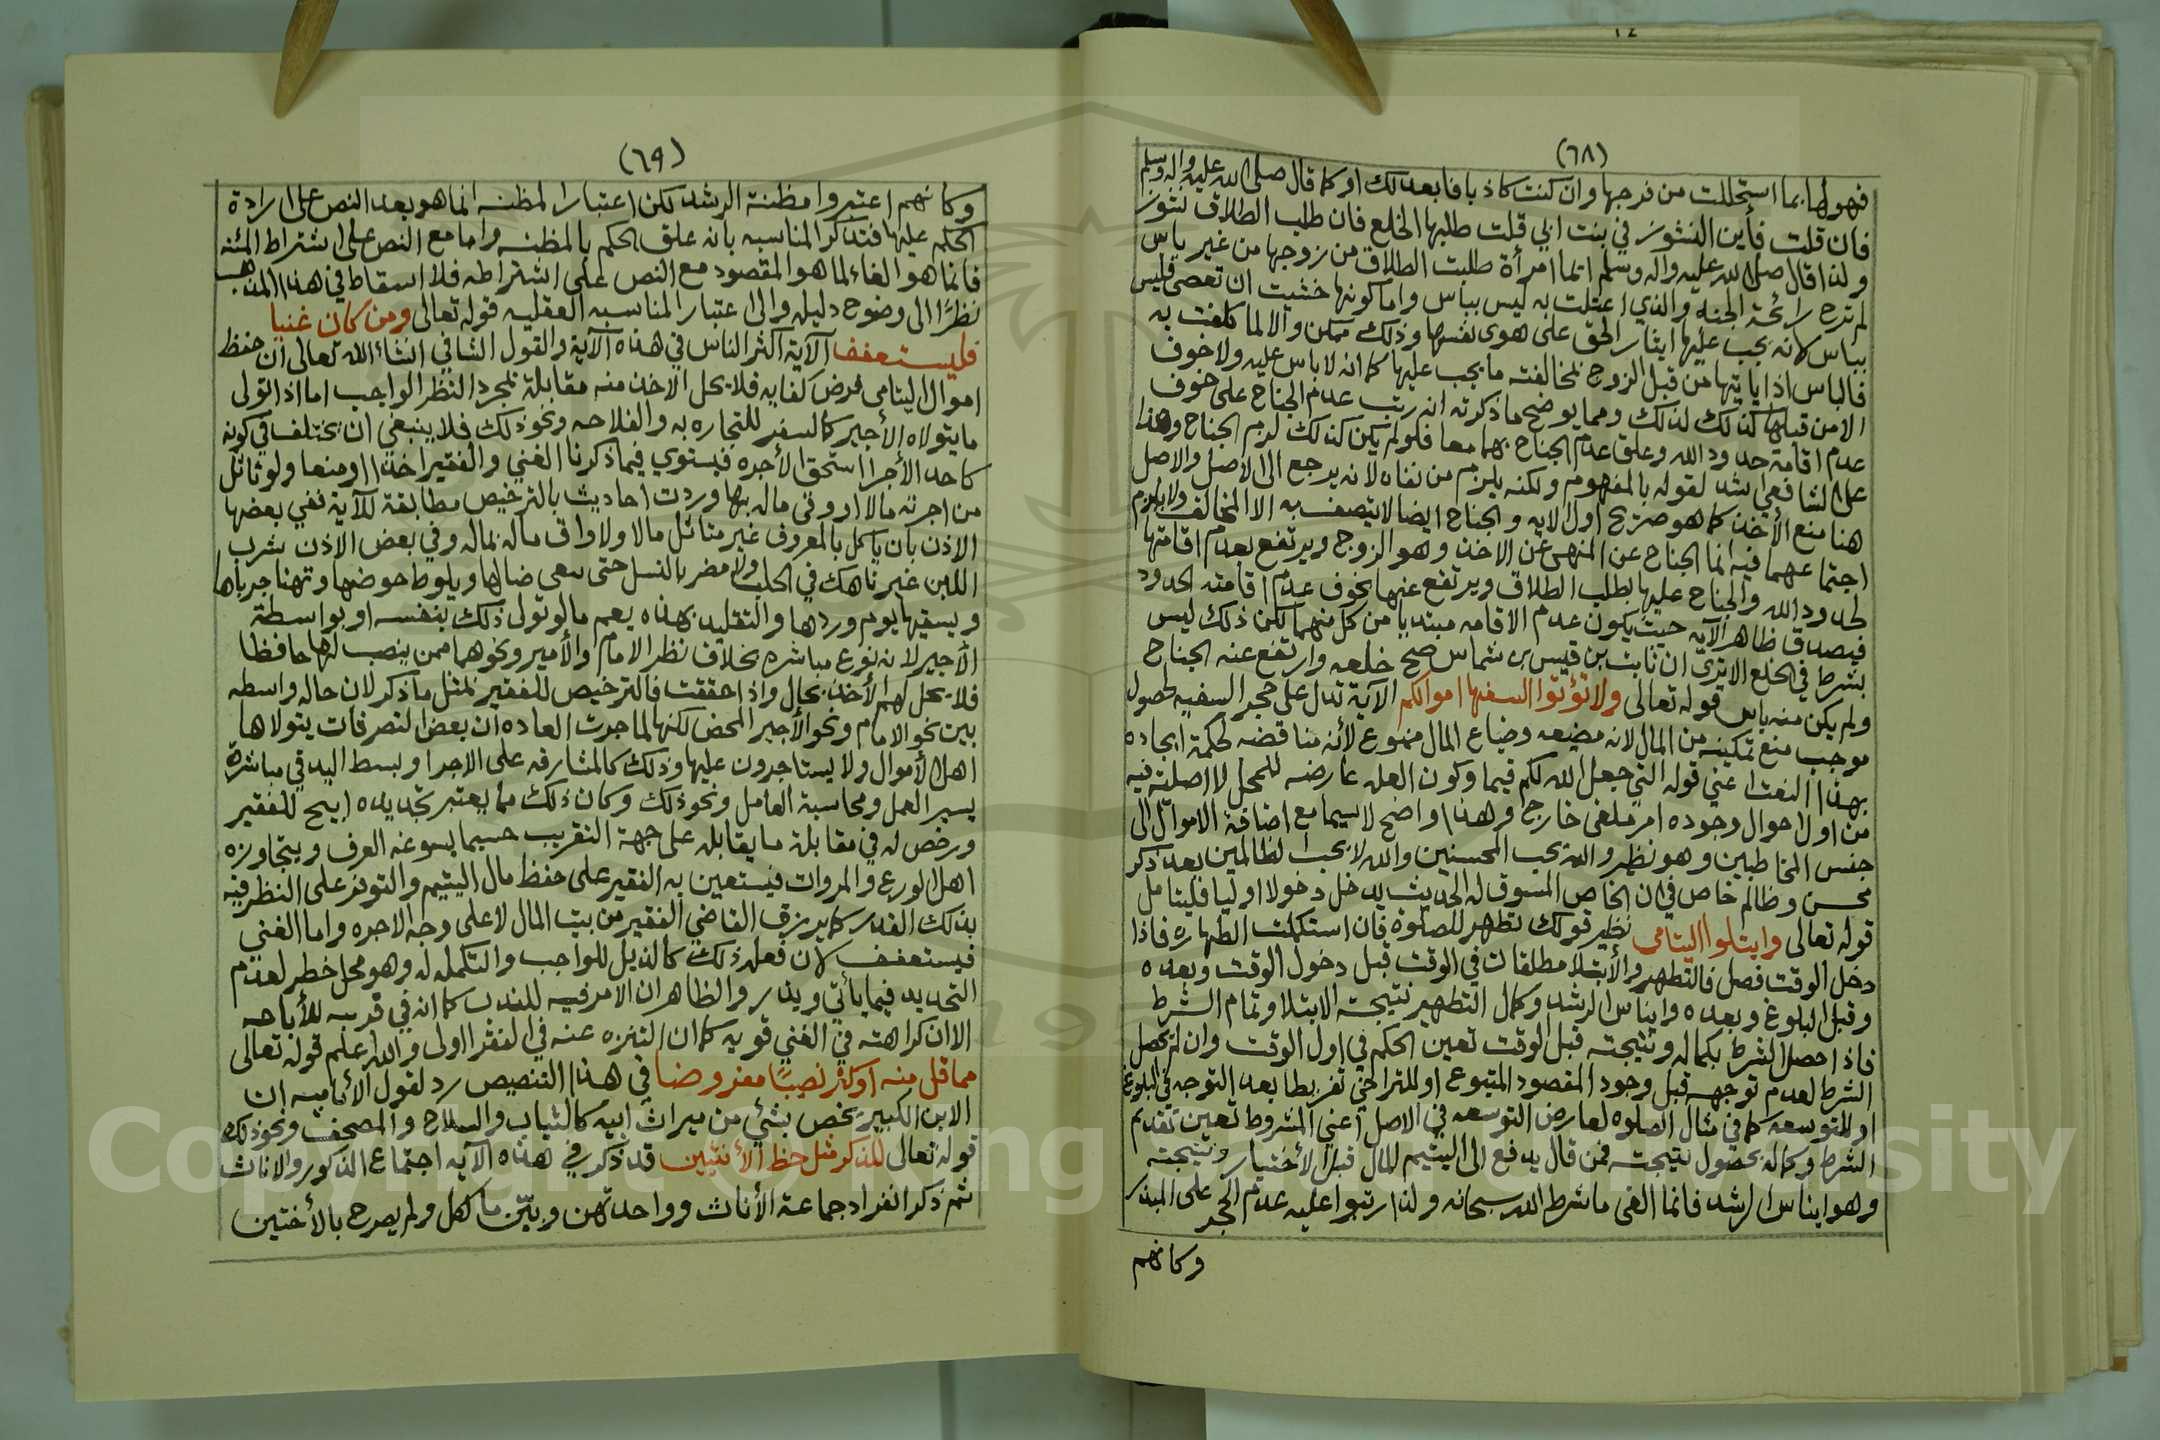 (٦٨)
فهو لها بما استحللت من فرجها وان كنت كاذبا فابعد لك او كما قال صلى الله عليه واله وسلم
فان قلت فأين النشوز في بنت ابي قلت طلبها الخلع فان طلب الطلاق نشوز
ولذا قال صلى الله عليه واله وسلم ايما امرأة طلبت الطلاق من زوجها من غير باس
لم ترح رائحة الجنه والذي اعتلت به ليس بباس واما كونها خشيت ان تعصي فليس
بباس لانه يجب عليها ايثار الحق على هوى نفسها وذلك ممكن والا لما كلفت به
فالباس اذا ياتيها من قبل الزوج بمخالفته ما يجب عليها كما انه لا باس عليه ولا خوف
الا من قبلها كذلك لذلك ومما يوضح ما ذكرته انه رتب عدم الجناح على خوف
عدم اقامة حدود الله وعلق عدم الجناح بهما معا فلو لم يكن كذلك لزم الجناح وهذا
على الشافعي اشد لقوله بالمفهوم ولكنه يلزم من نفاه لانه يرجع الى الاصل والاصل
هنا منع الأخذ كما هو صريح اول الايه والجناح ايضا لا يتصف به الا المخالف ولا يلزم
اجتماعهما فيه انما الجناح عن المنهي عن الاخذ وهو الزوج ويرتفع بعدم اقامتها
لحدود الله والجناح عليها بطلب الطلاق ويرتفع عنها بخوف عدم اقامته الحدود
فيصدق ظاهر الآيه حيث يكون عدم الاقامه مبتديا من كل منهما لكن ذلك ليس
بشرط في الخلع الا ترى ان ثابت بن قيس بن شماس صح خلعه وارتفع عنه الجناح
ولم يكن منه باس قوله تعالى ولا تؤتوا السفها اموالكم الآية تدل على حجر السفيه لحصول
موجب منع تمكينه من المال لانه مضيعه وضياع المال ممنوع لأنه مناقضه لحكمة ايجاده
بهذا النعت اعني قوله التي جعل الله لكم قيما وكون العله عارضه للمحل لا اصلية فيه
من اول احوال وجوده امر ملغى خارج وهذا واضح لاسيما مع اضافة الاموال الى
جنس المخاطبين وهو نظير والله يحب المحسنين والله لا يحب الظالمين بعد ذكر
محسن وظالم خاص في ان الخاص المسوق له الحديث يدخل دخولا اوليا فليتامل
قوله تعالى وابتلوا اليتامى نظير قولك تطهر للصلوة فان استكملت الطهاره فاذا
دخل الوقت فصل فالتطهر والأبتلا مطلقان في الوقت قبل دخول الوقت وبعده
وقبل البلوغ وبعده وايناس الرشد وكمال التطهير نتيجة الابتلا وتمام الشرط
فاذا حصل الشرط بكماله ونتيجته قبل الوقت تعين الحكم في اول الوقت وان لم يحصل
الشرط لعدم توجهه قبل وجود المقصود المتبوع او للتراخي تفريطا بعد التوجه في البلوغ
او للتوسعه كما في مثال الصلوه لعارض التوسعه في الاصل اعني المشروط تعين تقديم
الشرط وكماله بحصول نتيجته فمن قال يدفع الى اليتيم المال قبل الأختبار ونتيجته
وهو ايناس الرشد فانما الغى ما شرط الله سبحانه ولذا رتبوا عليه عدم الحجر على المبذر
وكانهم
(٦٩)
وكانهم اعتبروا مظنة الرشد لكن اعتبار المظنه انما هو بعد النص على ارادة
الحكم عليها فتذكر المناسبه بانه علق الحكم بالمظنه واما مع النص على اشتراط المئنه
فانما هو الغاء لما هو المقصود مع النص على اشتراطه فلا اسقاط في هذا المذهب
نظرًا الى وضوح دليله والى اعتبار المناسبه العقليه قوله تعالى ومن كان غنيا
فليستعفف الآية اكثر الناس في هذه الآية والقول الشافي انشاء الله تعالى ان حفظ
اموال اليتامى فرض كفايه فلا يحل الاخذ منه مقابلة لمجرد النظر الواجب اما اذا تولى
ما يتولاه الأجير كالسفر للتجاره به والفلاحه ونحو ذلك فلا ينبغي ان يختلف في كونه
كاحد الأجرا استحق الأجره فيستوي فيما ذكرنا الغني والفقير اخذا ومنعا ولو تاثل
من اجرته مالا او وقى ماله بها وردت احاديث بالترخيص مطابقة للآية ففي بعضها
الاذن بان ياكل بالمعروف غير متاثل مالا ولا واق ماله بماله وفي بعض الاذن بشرب
اللبن غير ناهك في الحلب ولا مضر بالنسل حتى يبغي ضالها ويلوط حوضها وتهنا جرباها
ويسقيها يوم وردها والتقليد بهذه يعم ما لو تولى ذلك بنفسه او بواسطة
الأجير لانه نوع مباشره بخلاف نظر الامام والأمير ونحوهما ممن ينصب لها حافظا
فلا يحل لهم الأخذ بحال واذا حققت فالترخيص للفقير لمثل ما ذكر لان حاله واسطه
بين نحو الامام ونحو الأجير المحض لكنها لما جرت العاده ان بعض التصرفات يتولاها
اهل الأموال ولا يستاجرون عليها وذلك كالمشارفه على الاجرا وبسط اليد في مباشرة
يسير العمل ومحاسبة العامل ونحو ذلك وكان ذلك مما يعتبر تحديده ابيح للفقير
ورخص له في مقابلة ما يقابله على جهة التقريب حسبما يسوغه العرف ويتجاوزه
اهل الورع والمروات فيستعين به الفقير على حفظ مال اليتيم والتوفر على النظر فيه
بذلك القدر كما يرزق القاضي الفقير من بيت المال لا على وجه الاجره واما الغني
فيستعفف لان فعله ذلك كالذيل للواجب والتكمله له وهو محل خطر لعدم
التحديد فيما ياتي ويذر والظاهر ان الامر فيه للندب كما انه في قربه للأباحه
الا ان كراهته في الغني قويه كما ان التنزه عنه في الفقر اولى والله اعلم قوله تعالى
مما قل منه أو كثر نصيبًا مفروضا في هذا التنصيص رد لقول الأماميه ان
الابن الكبير يخص بشيء من ميراث ابيه كالثياب والسلاح والمصحف ونحو ذلك
قوله تعالى للذكر مثل حظ الأنثيين قد ذكر في هذه الآيه اجتماع الذكور والاناث
ثم ذكر انفراد جماعة الأناث وواحدتهن وبيّن ما لكل ولم يصرح بالأختين
Copyright © King Saud University